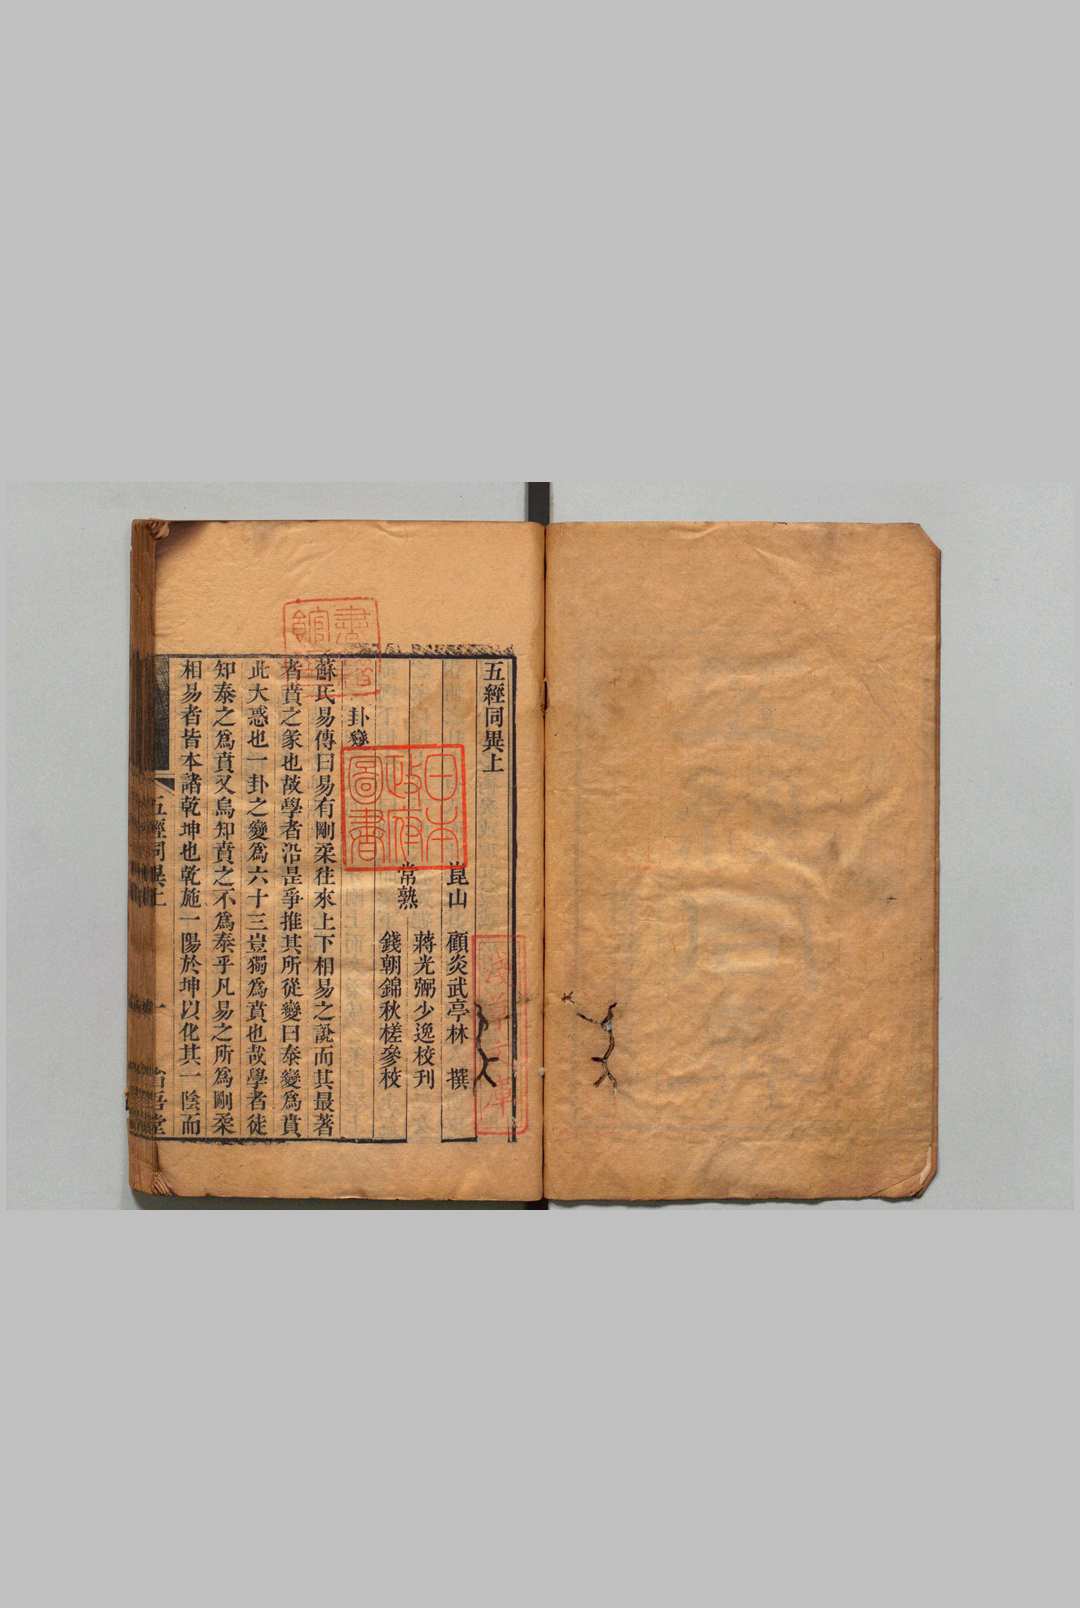 五經同異上
崑山　顧炎武亭林　撰
常熟　蔣光弼少逸校刊
錢朝錦秋槎參校
卦變
蘇氏易傳曰易有剛柔往來上下相易之說而其最著
者賁之彖也故學者沿是爭推其所從變曰泰變爲賁
此大惑也一卦之變爲六十三豈獨爲賁也哉學者徒
知泰之爲賁又烏知賁之不爲泰乎凡易之所爲剛柔
相易者皆本諸乾坤也乾施一陽於坤以化其一陰而
五經同異上
一
省吾堂
日本
政府
圖書